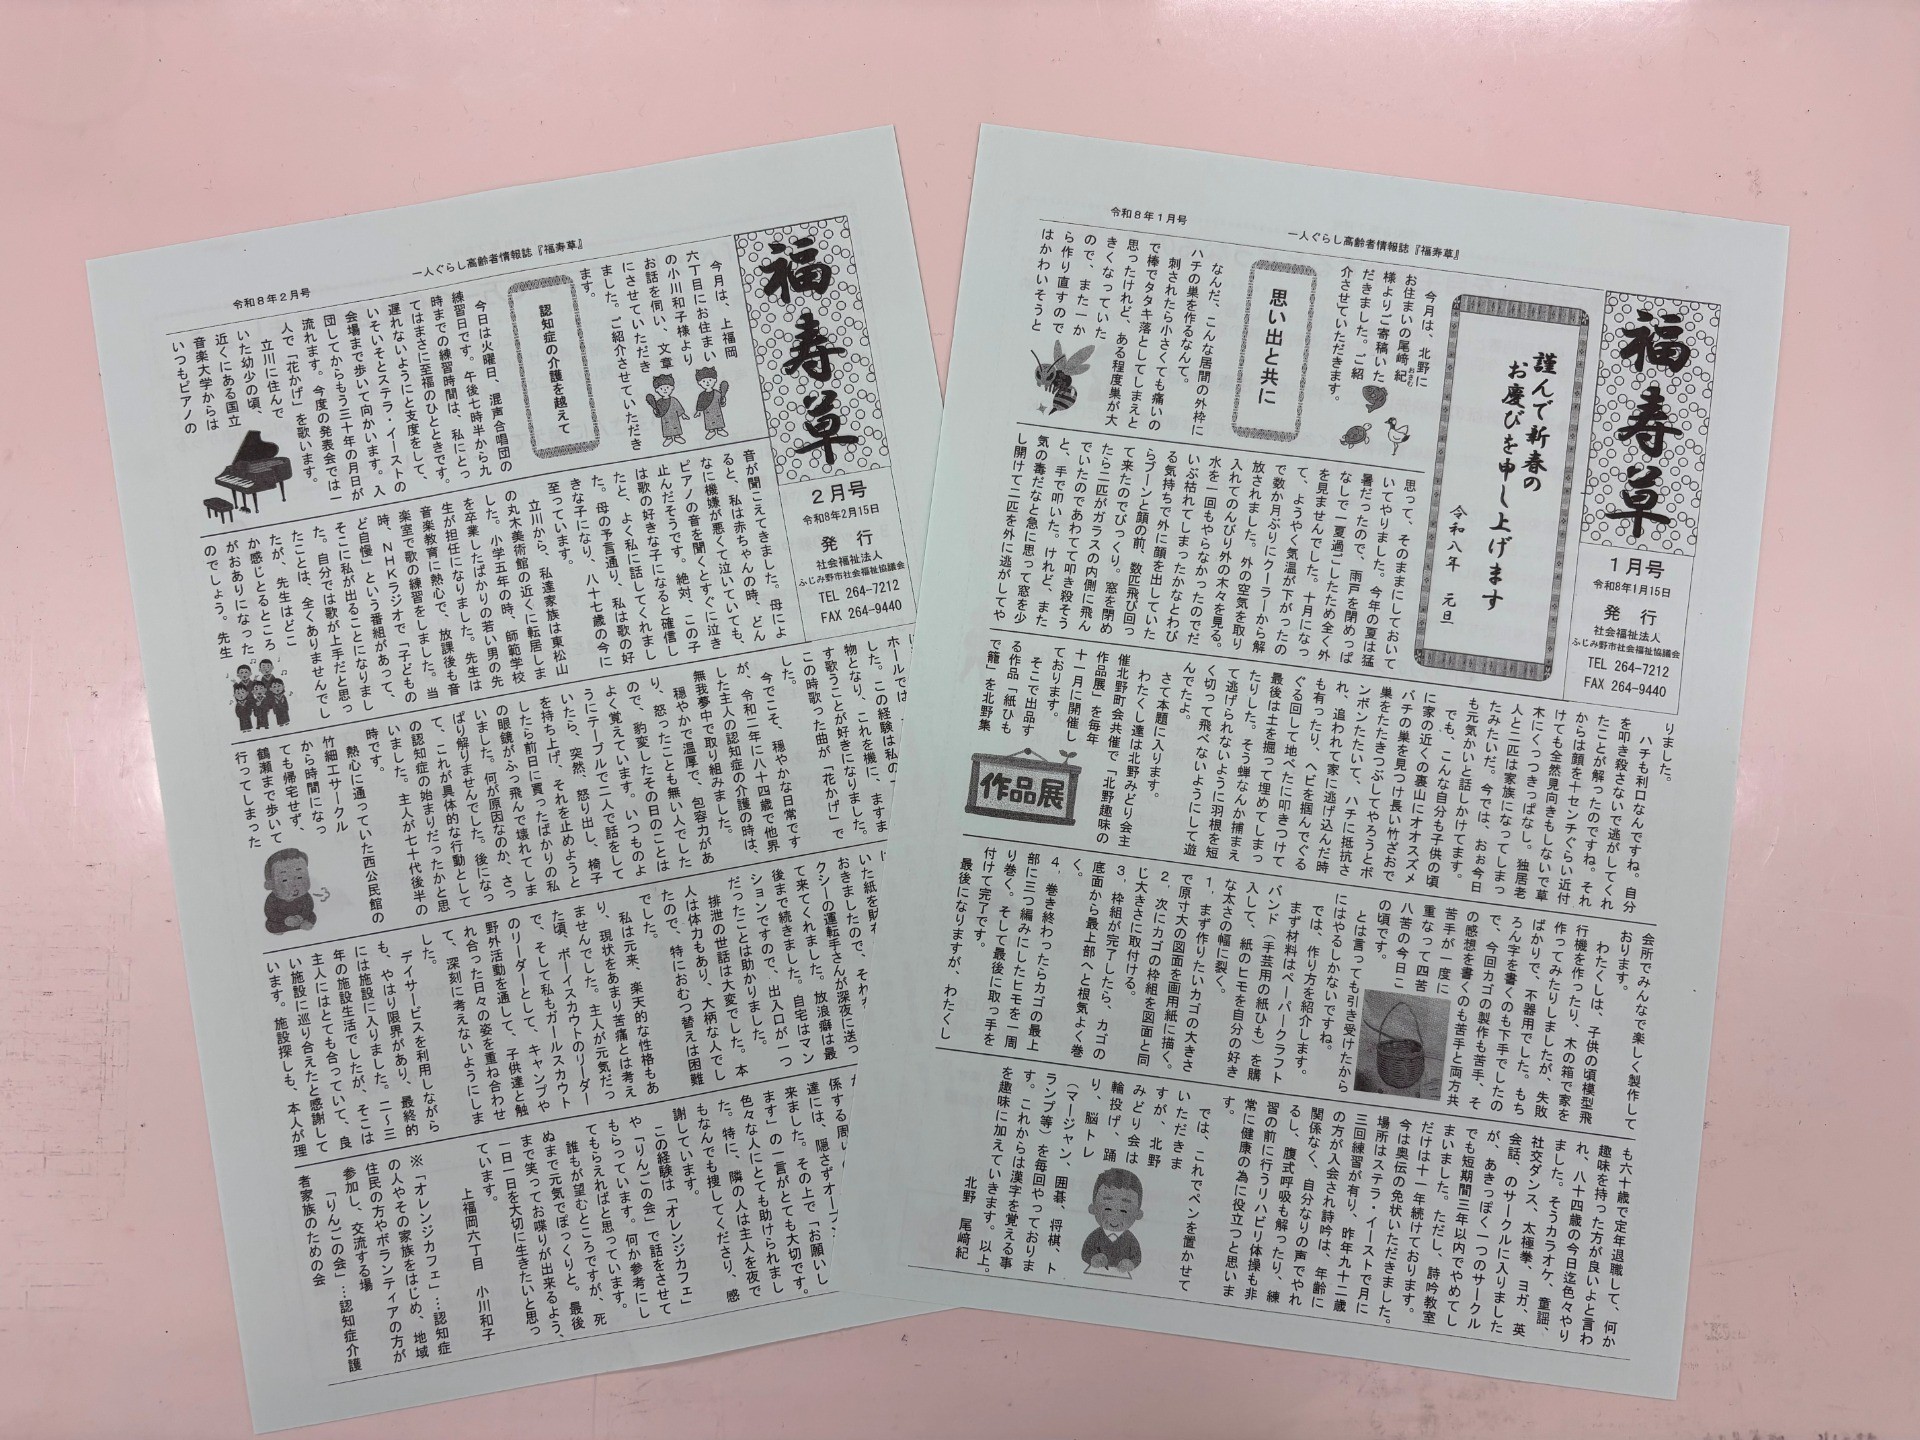 令和8年2月号
一人ぐらし高齢者情報誌『福寿草』
福寿草
2月号
令和8年2月15日
発 行
社会福祉法人
ふじみ野市社会福祉協議会
TEL 264-7212
FAX 264-9440
今月は、上福岡
六丁目にお住まい
の小川和子様より
お話を伺い、文章
にさせていただき
ました。ご紹介させていただき
ます。
認知症の介護を越えて
今日は火曜日、混声合唱団の
練習日です。午後七時半から九
時までの練習時間は、私にとっ
てはまさに至福のひとときです。
遅れないようにと支度をして、
いそいそとステラ・イーストの
会場まで歩いて向かいます。入
団してからもう三十年の月日が
流れます。今度の発表会では一
人で「花かげ」を歌います。
立川に住んで
いた幼少の頃、
近くにある国立
音楽大学からは
いつもピアノの
音が聞こえてきました。母によ
ると、私は赤ちゃんの時、どん
なに機嫌が悪くて泣いていても、
ピアノの音を聞くとすぐに泣き
止んだそうです。絶対、この子
は歌の好きな子になると確信し
たと、よく私に話してくれまし
た。母の予言通り、私は歌の好
きな子になり、八十七歳の今に
至っています。
立川から、私達家族は東松山
の丸木美術館の近くに転居しま
した。小学五年の時、師範学校
を卒業したばかりの若い男の先
生が担任になりました。先生は
音楽教育に熱心で、放課後も音
楽室で歌の練習をしました。当
時、NHKラジオで「子どもの
ど自慢」という番組があって、
そこに私が出ることになりまし
た。自分では歌が上手だと思っ
たことは、全くありませんでし
たが、先生はどこ
か感じとるところ
がおありになった
のでしょう。先生
ホールでは、
した。この経験は私の
物となり、これを機に、ますま
す歌うことが好きになりました。
この時歌った曲が「花かげ」で
した。
今でこそ、穏やかな日常です
が、令和二年に八十四歳で他界
した主人の認知症の介護の時は、
無我夢中で取り組みました。
穏やかで温厚で、包容力があ
り、怒ったことも無い人でした
ので、豹変したその日のことは
よく覚えています。いつものよ
うにテーブルで二人で話をして
いたら、突然、怒り出し、椅子
を持ち上げ、それを止めようと
したら前日に買ったばかりの私
の眼鏡がふっ飛んで壊れてしま
いました。何が原因なのか、さっ
ぱり解りませんでした。後になっ
て、これが具体的な行動として
の認知症の始まりだったかと思
いました。主人が七十代後半の
時です。
熱心に通っていた西公民館の
竹細工サークル
から時間になっ
ても帰宅せず、
鶴瀬まで歩いて
行ってしまった
いた紙を財
おきましたので、それ
クシーの運転手さんが深夜に送っ
て来てくれました。放浪癖は最
後まで続きました。自宅はマン
ションですので、出入口が一つ
だったことは助かりました。
排泄の世話は大変でした。本
人は体力もあり、大柄な人でし
たので、特におむつ替えは困難
でした。
私は元来、楽天的な性格もあ
り、現状をあまり苦痛とは考え
ませんでした。主人が元気だっ
た頃、ボーイスカウトのリーダー
で、そして私もガールスカウト
のリーダーとして、キャンプや
野外活動を通して、子供達と触
れ合った日々の姿を重ね合わせ
て、深刻に考えないようにしま
した。
デイサービスを利用しながら
も、やはり限界があり、最終的
には施設に入りました。二～三
年の施設生活でしたが、そこは
主人にはとても合っていて、良
い施設に巡り合えたと感謝して
います。施設探しも、本人が理
係する周い
達には、隠さずオープ
来ました。その上で「お願いし
ます」の一言がとても大切です。
色々な人にとても助けられまし
た。特に、隣の人は主人を夜で
もなんでも捜してくださり、感
謝しています。
この経験は「オレンジカフェ」
や「りんごの会」で話をさせて
もらっています。何か参考にし
てもらえればと思っています。
誰もが望むところですが、死
ぬまで元気でぽっくりと。最後
まで笑ってお喋りが出来るよう、
一日一日を大切に生きたいと思っ
ています。
上福岡六丁目 小川和子
※「オレンジカフェ」…認知症
の人やその家族をはじめ、地域
住民の方やボランティアの方が
参加し、交流する場
「りんごの会」…認知症介護
者家族のための会
令和8年1月号
一人ぐらし高齢者情報誌『福寿草』
福寿草
1月号
令和8年1月15日
発 行
社会福祉法人
ふじみ野市社会福祉協議会
TEL 264-7212
FAX 264-9440
謹んで新春の
お慶びを申し上げます
令和八年 元旦
今月は、北野に
お住まいの尾﨑 紀
様よりご寄稿いた
だきました。ご紹
介させていただきます。
思い出と共に
なんだ、こんな居間の外枠に
ハチの巣を作るなんて。
刺されたら小さくても痛いの
で棒でタタキ落としてしまえと
思ったけれど、ある程度巣が大
きくなっていた
ので、また一か
ら作り直すので
はかわいそうと
思って、そのままにしておいて
いてやりました。今年の夏は猛
暑だったので、雨戸を閉めっぱ
なしで一夏過ごしたため全く外
を見ませんでした。十月になっ
て、ようやく気温が下がったの
で数か月ぶりにクーラーから解
放されました。外の空気を取り
入れてのんびり外の木々を見る。
水を一回もやらなかったのでだ
いぶ枯れてしまったかなとわび
る気持ちで外に顔を出していた
らブーンと顔の前、数匹飛び回っ
て来たのでびっくり。窓を閉め
たら二匹がガラスの内側に飛ん
でいたのであわてて叩き殺そう
と、手で叩いた。けれど、また
気の毒だなと急に思って窓を少
し開けて二匹を外に逃がしてや
りました。
ハチも利口なんですね。自分
を叩き殺さないで逃がしてくれ
たことが解ったのですね。それ
からは顔を十センチぐらい近付
けても全然見向きもしないで草
木にくっつきっぱなし。独居老
人と二匹は家族になってしまっ
たみたいだ。今では、おぉ今日
も元気かいと話しかけてます。
でも、こんな自分も子供の頃
に家の近くの裏山にオオスズメ
バチの巣を見つけ長い竹ざおで
巣をたたきつぶしてやろうとポ
ンポンたたいて、ハチに抵抗さ
れ、追われて家に逃げ込んだ時
も有ったり、ヘビを掴んでぐる
ぐる回して地べたに叩きつけて
最後は土を掘って埋めてしまっ
たりした。そう蝉なんか捕まえ
て逃げられないように羽根を短
く切って飛べないようにして遊
んでたよ。
さて本題に入ります。
わたくし達は北野みどり会主
催北野町会共催で「北野趣味の
作品展」を毎年
十一月に開催し
ております。
そこで出品す
る作品「紙ひも
で籠」を北野集
作品展
会所でみんなで楽しく製作して
おります。
わたくしは、子供の頃模型飛
行機を作ったり、木の箱で家を
作ってみたりしましたが、失敗
ばかりで、不器用でした。もち
ろん字を書くのも下手でしたの
で、今回カゴの製作も苦手、そ
の感想を書くのも苦手と両方共
苦手が一度に
重なって四苦
八苦の今日こ
の頃です。
とは言っても引き受けたから
にはやるしかないですね。
では、作り方を紹介します。
まず材料はペーパークラフト
バンド（手芸用の紙ひも）を購
入して、紙のヒモを自分の好き
な太さの幅に裂く。
1．まず作りたいカゴの大きさ
で原寸大の図面を画用紙に描く。
2．次にカゴの枠組を図面と同
じ大きさに取付ける。
3．枠組が完了したら、カゴの
底面から最上部へと根気よく巻
く。
4．巻き終わったらカゴの最上
部に三つ編みにしたヒモを一周
り巻く。そして最後に取っ手を
付けて完了です。
最後になりますが、わたくし
も六十歳で定年退職して、何か
趣味を持った方が良いよと言わ
れ、八十四歳の今日迄色々やり
ました。そうカラオケ、童謡、
社交ダンス、太極拳、ヨガ、英
会話、のサークルに入りました
が、あきっぽく一つのサークル
でも短期間三年以内でやめてし
まいました。ただし、詩吟教室
だけは十一年続けております。
今は奥伝の免状いただきました。
場所はステラ・イーストで月に
三回練習が有り、昨年九十二歳
の方が入会され詩吟は、年齢に
関係なく、自分なりの声でやれ
るし、腹式呼吸も解ったり、練
習の前に行うリハビリ体操も非
常に健康の為に役立つと思いま
す。
では、これでペンを置かせて
いただきま
すが、北野
みどり会は
輪投げ、踊
り、脳トレ
（マージャン、囲碁、将棋、ト
ランプ等）を毎回やっておりま
す。これからは漢字を覚える事
を趣味に加えていきます。以上。
北野 尾﨑紀